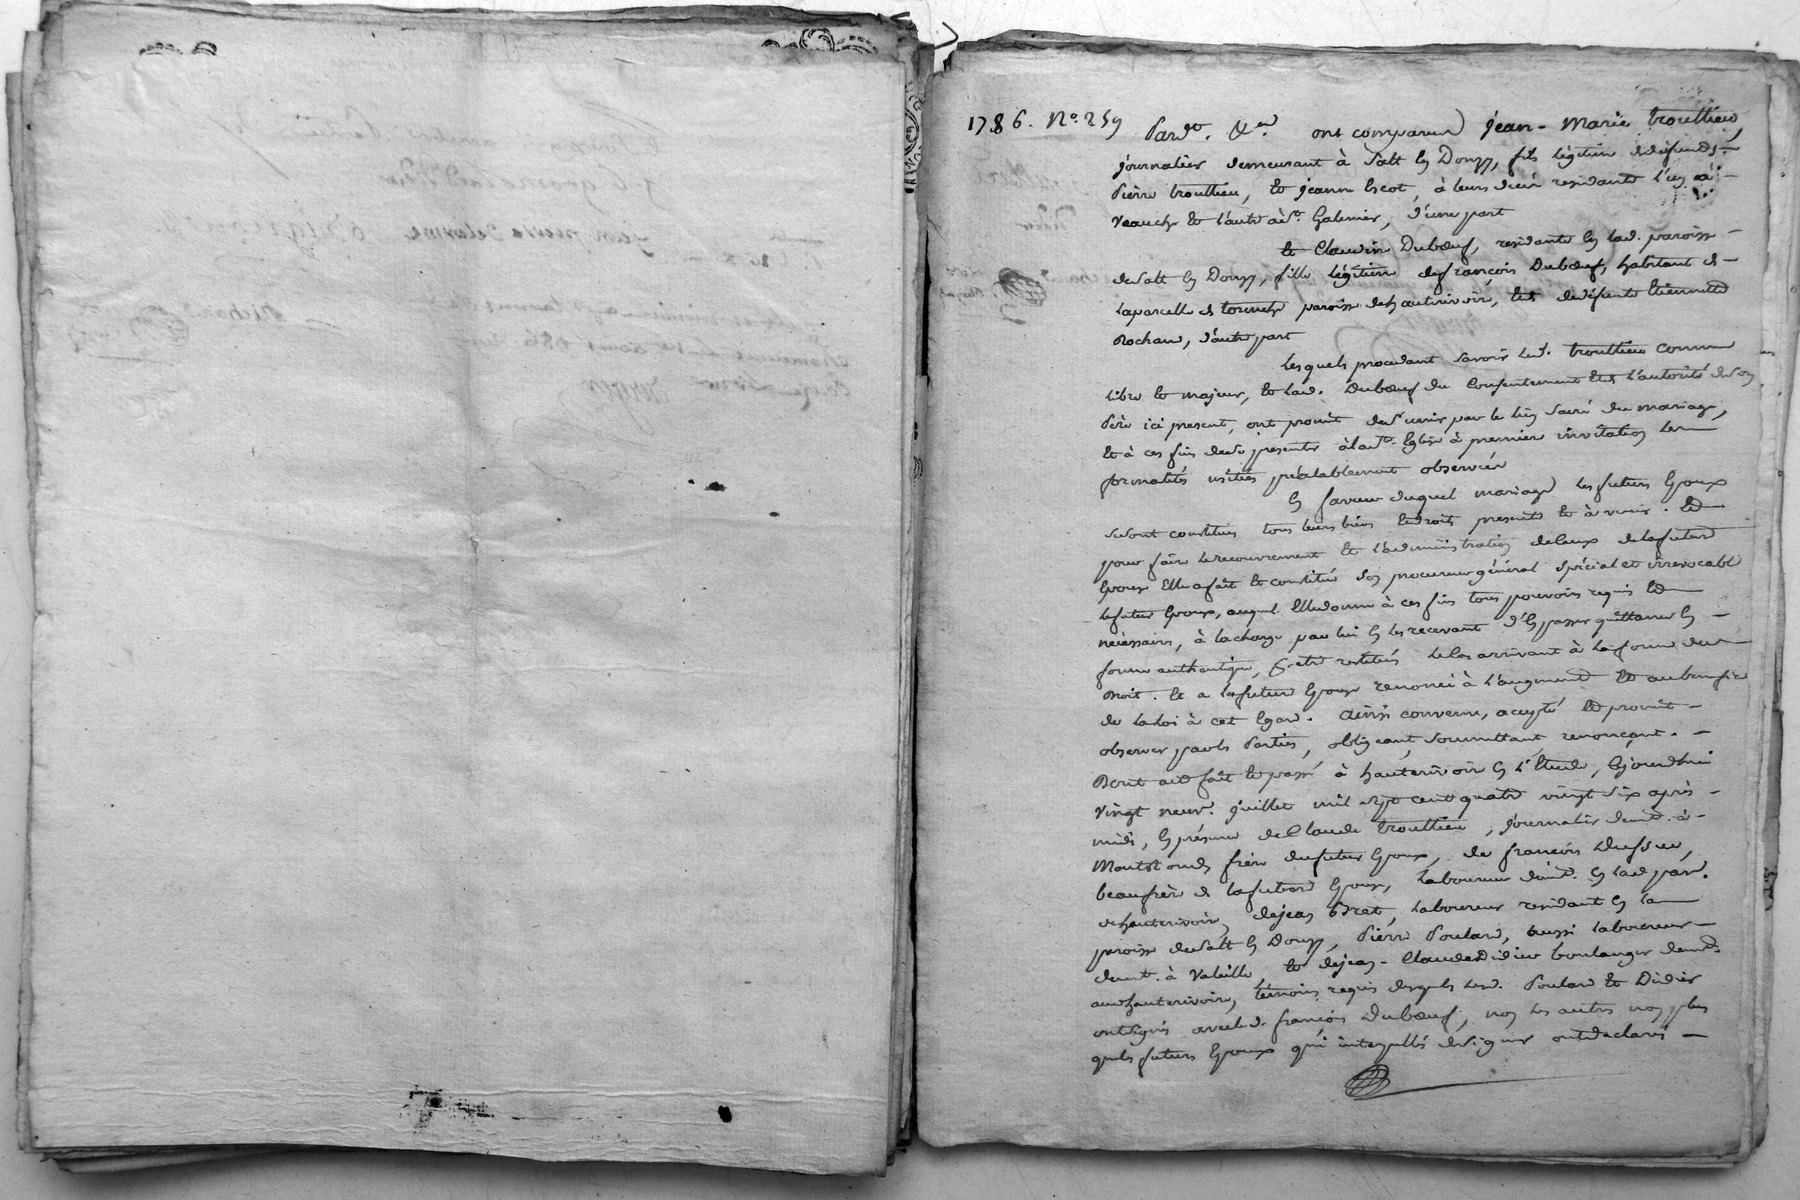 1786. N.o 259
Pard.t &.en ont comparu Jean-Marie trouttieu,
journalier demeurant à Salt en Donzy, fils légitime de défunts
Pierre trouttieu, et Jeanne Escot, à leurs décès residants l'un à
Veauche et l'autre à S.t Galmier, d'une part
et Claudine Dubœuf, residante en lad. paroisse
de Salt en Donzy, fille légitime de françois Dubœuf, habitant de
la parcelle de tourville paroisse de hauterivoire, et de défunte Etiennette
Rochand, d'autre part
Lesquels procedant savoir led. trouttieu comme
libre et majeur, et lad. Dubœuf du consentement et de l'autorité de son
Père ici present, ont promis de s'unir par le lien sacré du mariage,
et à ces fins de se presenter à la d.e Eglise à premiere invitation les
formalités usitées préalablement observées
En faveur duquel mariage les futurs Epoux
se sont constitués tous leurs biens et droits presents et à venir. Et
pour faire le recouvrement et l'administration de ceux de la future
Epouse Elle a fait et constitué son procureur général spécial et irrevocable
le futur Epoux, auquel Elle donne à ces fins tous pouvoirs requis et
nécéssaires, à la charge par lui en les recevant d'en passer quittances en
forme authentique, p.r etre restitués le cas arrivant à la forme du
droit. Et a la future Epouse renoncé à l'augment et au benefice
de la loi à cet Egard. Ainsi convenu, accepté et promis
observer par les Parties, obligeant, soumettant renonçant.
Dont acte fait et passé à hauterivoire en l'Etude, cejourdhui
vingt neuf Juillet mil sept cent quatre vingt six après
midi, En présence de Claude trouttieu, journalier dem.t à
Montrond, frère du futur Epoux, de francois Dussieu,
beaufrère de la future Epouse, laboureur dem.t en lad. par.
de hauterivoire, de jean Bret, laboureur residant en la
paroisse de Salt en Donzy, Pierre Poulard, aussi laboureur
dem.t à Valeille, et de jean-Claude Didier boulanger dem.t
aud. hauterivoire, témoins requis desquels lesd. Poulard et Didier
ont signé avec led. françois Dubœuf, non les autres non plus
que les futurs Epoux qui interpellés de signer ont declaré